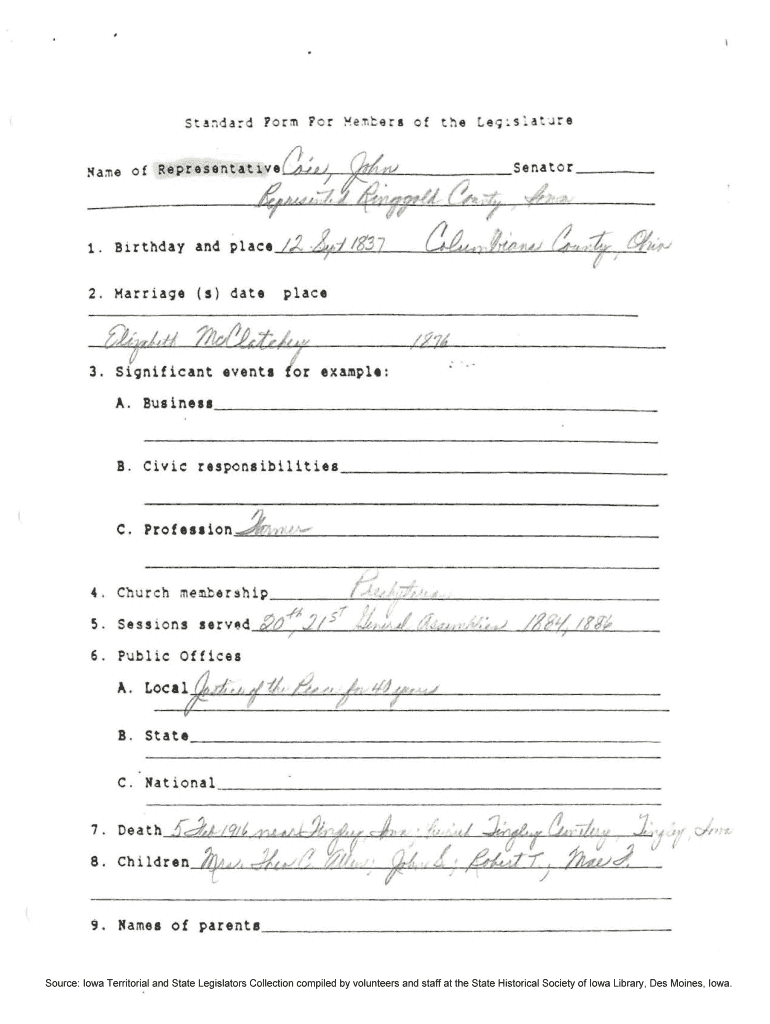 Standard Form For Members of the Legislature
Name of Representative Case, John Senator
Represented Ringgold County, Iowa
1. Birthday and place 12 Sept 1837 Columbiana County, Ohio
2. Marriage (s) date place
Elizabeth McClatchey 1876
3. Significant events for example:
A. Business
B. Civic responsibilities
C. Profession Farmer
4. Church membership Presbyterian
5. Sessions served 20th, 21st General Assemblies 1884, 1886
6. Public Offices
A. Local Justice of the Peace for 40 years
B. State
C. National
7. Death 5 Feb 1916 near Tingley, Iowa; buried Tingley Cemetery, Tingley, Iowa
8. Children Mrs. Theo C. Allen; John S.; Robert T.; Mae F.
9. Names of parents
Source: Iowa Territorial and State Legislators Collection compiled by volunteers and staff at the State Historical Society of Iowa Library, Des Moines, Iowa.